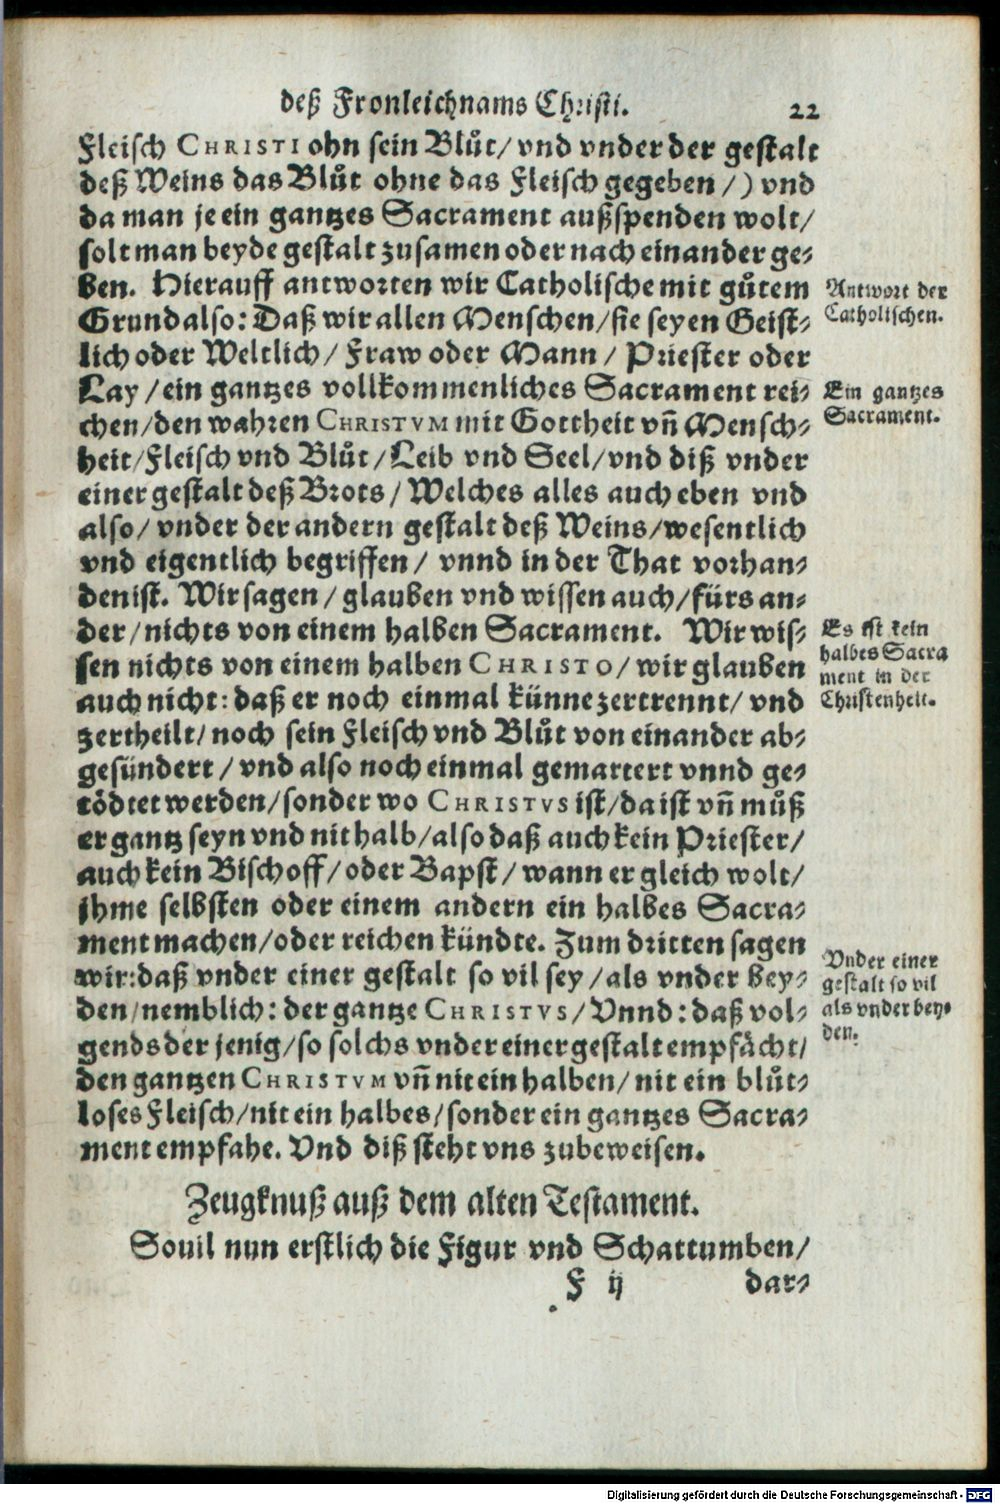 deß Fronleichnams Christi. 22
Fleisch CHRISTI ohn sein Blůt/ vnd vnder der gestalt
deß Weins das Blůt ohne das Fleisch gegeben/) vnd
da man je ein gantzes Sacrament außspenden wolt/
solt man beyde gestalt zusamen oder nach einander ge⸗
ben. Hierauff antworten wir Catholische mit gůtem
Grund also: Daß wir allen Menschen/ sie seyen Geist⸗
lich oder Weltlich/ Fraw oder Mann/ Priester oder
Lay/ ein gantzes vollkommenliches Sacrament rei⸗
chen/ den wahren CHRISTVM mit Gottheit vñ Mensch⸗
heit/ Fleisch vnd Blůt/ Leib vnd Seel/ vnd diß vnder
einer gestalt deß Brots/ Welches alles auch eben vnd
also/ vnder der andern gestalt deß Weins/ wesentlich
vnd eigentlich begriffen/ vnnd in der That vorhan⸗
den ist. Wir sagen/ glauben vnd wissen auch/ fürs an⸗
der/ nichts von einem halben Sacrament. Wir wis⸗
sen nichts von einem halben CHRISTO/ wir glauben
auch nicht: daß er noch einmal künne zertrennt/ vnd
zertheilt/ noch sein Fleisch vnd Blůt von einander ab⸗
gesündert/ vnd also noch einmal gemartert vnnd ge⸗
tödtet werden/ sonder wo CHRISTVS ist/ da ist vñ můß
er gantz seyn vnd nit halb/ also daß auch kein Priester/
auch kein Bischoff/ oder Bapst/ wann er gleich wolt/
jhme selbsten oder einem andern ein halbes Sacra⸗
ment machen/ oder reichen kündte. Zum dritten sagen
wir: daß vnder einer gestalt so vil sey/ als vnder bey⸗
den/ nemblich: der gantze CHRISTVS/ Vnnd: daß vol⸗
gends der jenig/ so solchs vnder einer gestalt empfächt/
den gantzen CHRISTVM vñ nit ein halben/ nit ein blůt⸗
loses Fleisch/ nit ein halbes/ sonder ein gantzes Sacra⸗
ment empfahe. Vnd diß steht vns zubeweisen.
Antwort der
Catholischen.
Ein gantzes
Sacrament.
Es ist kein
halbes Sacra
ment in der
Christenheit.
Vnder einer
gestalt so vil
als vnder bey⸗
den.
Zeugknuß auß dem alten Testament.
Souil nun erstlich die Figur vnd Schattumben/
F ij dar⸗
Digitalisierung gefördert durch die Deutsche Forschungsgemeinschaft - DFG